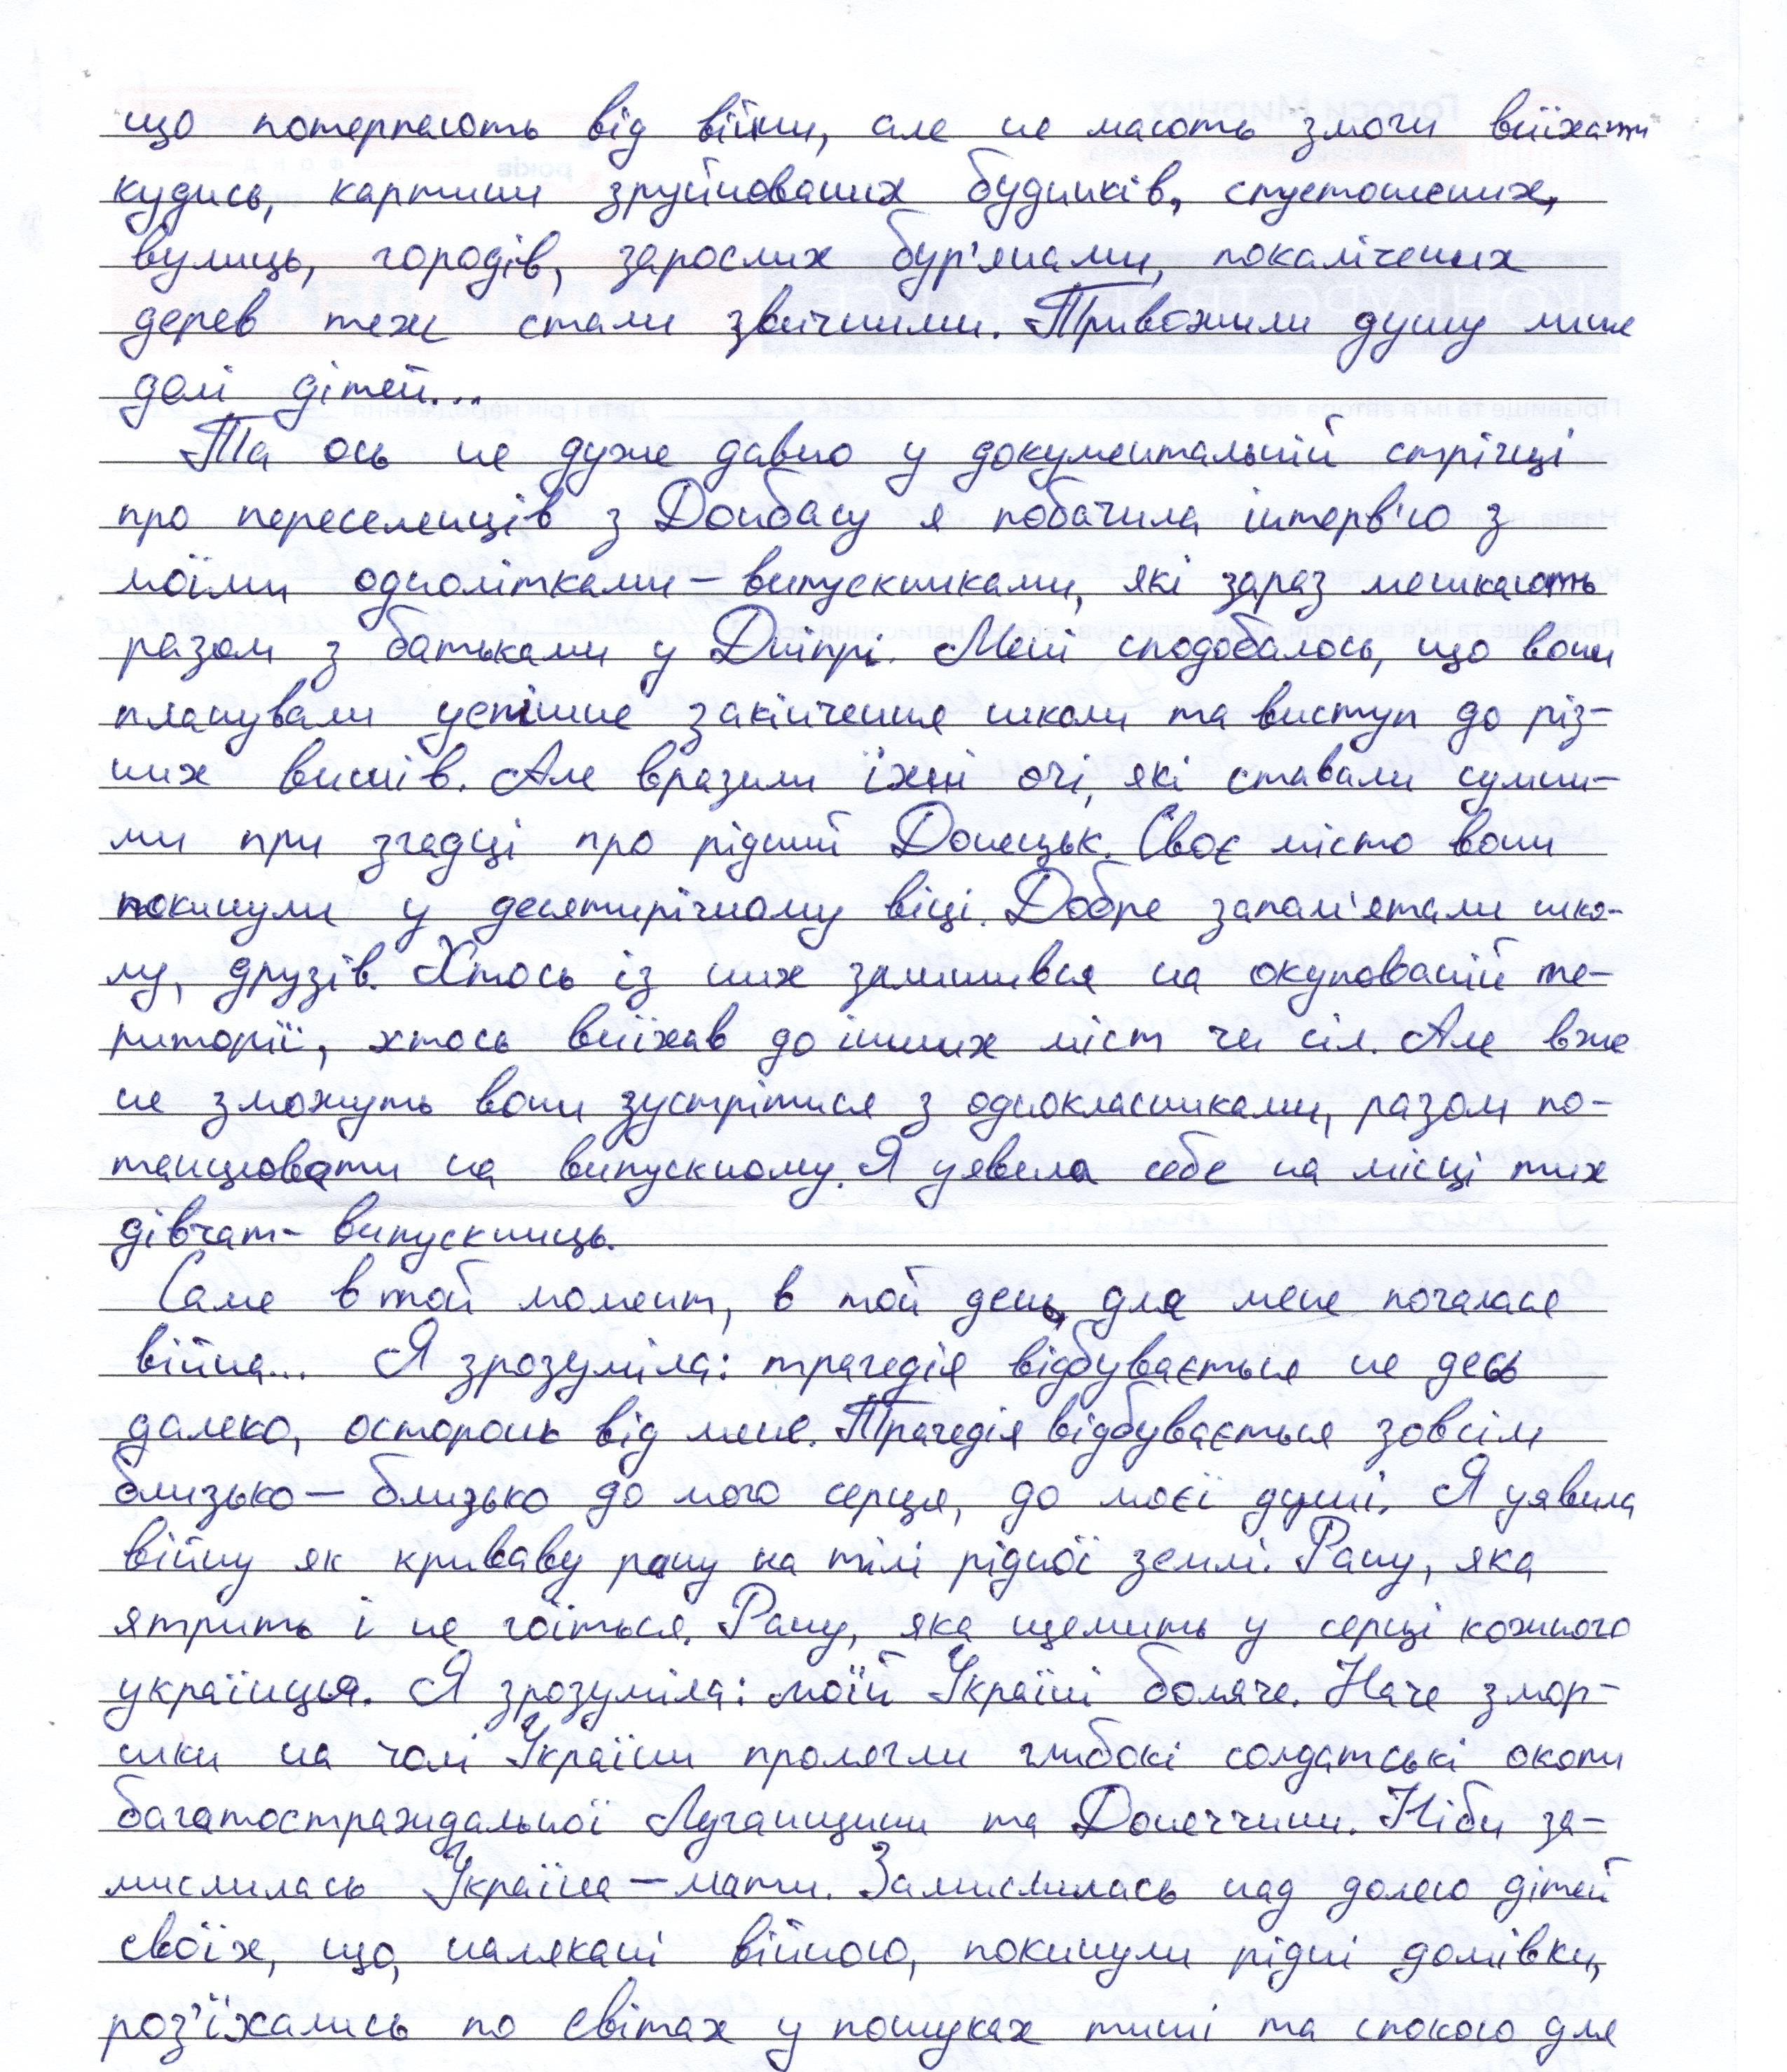 що потерпають від війни, але не мають змоги виїхати
кудись, картини зруйнованих будинків, спустошених,
вулиць, городів, зарослих бур'янами, покалічених
дерев теж стали звичними. Тривожили душу лише
долі дітей...
Та ось не дуже давно у документальній стрічці
про переселенців з Донбасу я побачила інтерв'ю з
моїми однолітками – випускниками, які зараз мешкають
разом з батьками у Дніпрі. Мені сподобалось, що вони
планували успішне закінчення школи та виступ до різ-
них вишів. Але вразили їхні очі, які ставали сумни-
ми при згадці про рідний Донецьк. Своє місто вони
покинули у десятирічному віці. Добре запам'ятали шко-
лу, друзів. Хтось із них залишився на окупованій те-
риторії, хтось виїхав до інших міст чи сіл. Але вже
не зможуть вони зустрітися з однокласниками, разом по-
танцювати на випускному. Я уявила себе на місці тих
дівчат- випускниць.
Саме в той момент, в той день, для мене почалася
війна... Я зрозуміла: трагедія відбувається не десь
далеко, осторонь від мене. Трагедія відбувається зовсім
близько – близько до мого серця, до моєї душі. Я уявила
війну як криваву рану на тілі рідної землі. Рану, яка
ятрить і не гоїться. Рану, яка щемить у серці кожного
українця. Я зрозуміла: моїй Україні боляче. Наче змор-
шки на чолі України пролягли глибокі солдатські окопи
багатостраждальної Луганщини та Донеччини. Ніби за-
мислилась Україна – мати. Замислилась над долею дітей
своїх, що, налякані війною, покинули рідні домівки,
роз'їхались по світах у пошуках тиші та спокою для